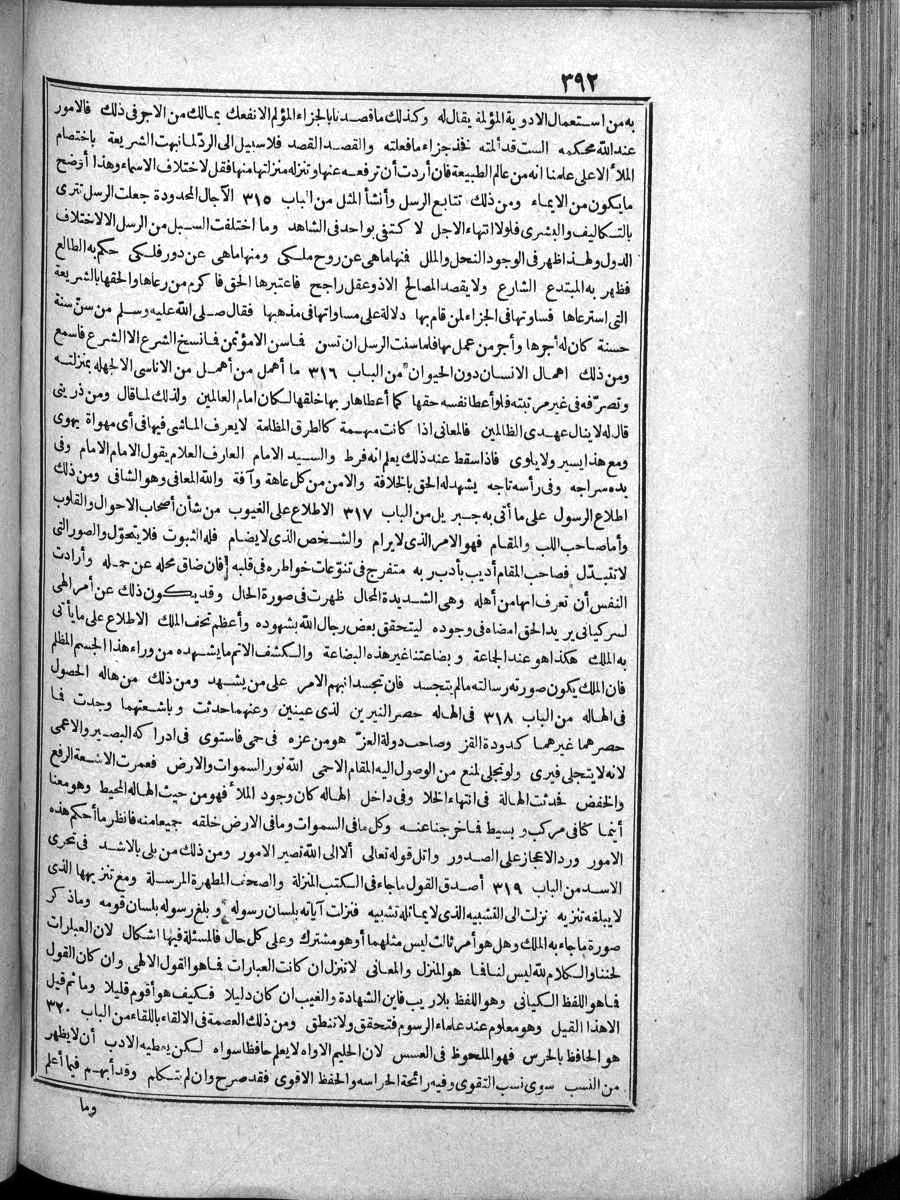 ٣٩٢
به من استعمال الادوية المؤلمة يقال له وكذلك ما قصدنا بالجزاء المؤلم الا نفعك بمالك من الاجر فى ذلك فالامور
عند الله محكمه ألست قد ألمته فخذ جزاء ما فعلته والقصد القصد فلا سبيل الى الرد لما نبهت الشريعة باختصام
الملأ الاعلى علمنا انه من عالم الطبيعة فان أردت أن ترفعه عنها وتنزله منزلتها منها فقل لاختلاف الاسماء وهذا أوضح
ما يكون من الايماء ومن ذلك تتابع الرسل وأنشأ المثل من الباب ٣١٥ الآجال المحدودة جعلت الرسل تترى
بالتكاليف والبشرى فلولا انتهاء الاجل لاكتفى بواحد فى الشاهد وما اختلفت السبل من الرسل الا لاختلاف
الدول ولهذا ظهر فى الوجود النحل والملل فنها ماهى عن روح ملكى ومنها ماهى عن دور فلكى حكم به الطالع
فظهر به المبتدع الشارع ولا يقصد المصالح الا ذو عقل راجح فاعتبرها الحق فاكرم من رعاها والحقها بالشريعة
التى استرعاها فساوتها فى الجزاء لمن قام بها دلالة على مساواتها فى مذهبها فقال صلى الله عليه وسلم من سنّ سنة
حسنة كان له أجرها وأجر من عمل بها فلما سنت الرسل ان تسن فاسن الا مؤتمن فما نسخ الشرع الا الشرع فاسمع
ومن ذلك اهمال الانسان دون الحيوان من الباب ٣١٦ ما أهمل من أهمل من الاناسى الا لجهله بمنزلته
وتصرّفه فى غير مرتبته فلو أعطا نفسه حقها كما أعطاها ربها خلقها لكان امام العالمين ولذلك لما قال ومن ذريتى
قال له لا ينال عهدى الظالمين فالمعانى اذا كانت مبهمة كالطرق المظلمة لا يعرف الماشى فيها فى أى مهواة يهوى
ومع هذا يسير ولا ياوى فاذا سقط عند ذلك يعلم انه فرط والسيد الامام العارف العلام يقول الامام الامام وفى
يده سراجه وفى رأسه تاجه يشهد له الحق بالخلافة والامن من كل عاهة وآفة والله المعافى وهو الشافى ومن ذلك
اطلاع الرسول على ما أتى به جبريل من الباب ٣١٧ الاطلاع على الغيوب من شأن أصحاب الاحوال والقلوب
وأما صاحب اللب والمقام فهو الامر الذى لا يرام والشخص الذى لا يضام فله الثبوت فلا يتحوّل والصور التى
لا تتبدّل فصاحب المقام أديب بأدب ربه متفرج فى تنوّعات خواطره فى قلبه فان ضاق محله عن حمله وأرادت
النفس أن تعرف انها من أهله وهى الشديدة المحال ظهرت فى صورة الحال وقد يكون ذلك عن أمر الهى
لسر كيانى يريد الحق امضاه فى وجوده ليتحقق بعض رجال الله بشهوده وأعظم تحف الملك الاطلاع على ما يأتى
به الملك هكذا هو عند الجماعة وبضاعتنا غير هذه البضاعة والكشف الاتم ما يشهده من وراء هذا الجسم المظلم
فان الملك يكون صورته رسالته ما لم يتجسد فان تجسد انبهم الامر على من يشهد ومن ذلك من هاله الحصول
فى الهاله من الباب ٣١٨ فى الهاله حصر النيرين لذى عينين وعنهما حدثت وباشعتهما وجدت فما
حصرهما غيرهما كدودة القز وصاحب دولة العزّ هو من عزه فى حمى فاستوى فى ادراكه البصير والاعمى
لانه لا يتجلى فيرى ولو تجلى لمنع من الوصول اليه المقام الاحمى الله نور السموات والارض فعمرت الاشعة الرفع
والخفض فحدثت الهالة فى انتهاء الخلا وفى داخل الهاله كان وجود الملأ فهو من حيث الهاله المحيط وهو معنا
أينما كنا فى مركب وبسيط فما خرجنا عنه وكل ما فى السموات وما فى الارض خلقه جميعا منه فانظر ما أحكم هذه
الامور ورد الاعجاز على الصدور واتل قوله تعالى ألا الى الله تصير الامور ومن ذلك من بلى بالاشد فى تحرى
الاسد من الباب ٣١٩ أصدق القول ما جاء فى الكتب المنزلة والصحف المطهرة المرسلة ومع تنزيهها الذى
لا يبلغه تنزيه نزلت الى التشبيه الذى لا يماثله تشبيه فنزلت آياته بلسان رسوله وبلغ رسوله بلسان قومه وما ذكر
صورة ما جاء به الملك وهل هو أمر ثالث ليس مثلهما أو هو مشترك وعلى كل حال فالمسئلة فيها اشكال لان العبارات
لحننا والكلام لله ليس لنا فما هو المنزل والمعانى لا تنزل ان كانت العبارات فما هو القول الالهى وان كان القول
فما هو اللفظ الكيانى وهو اللفظ بلا ريب فاين الشهادة والغيب ان كان دليلا فكيف هو أقوم قليلا وما ثم قيل
الا هذا القيل وهو معلوم عند علماء الرسوم فتحقق ولا تنطق ومن ذلك العصمة فى الالقاء باللقاء من الباب ٣٢٠
هو الحافظ بالحرس فهو الملحوظ فى العسس لان الحليم الاواه لا يعلم حافظا سواه لكن يعطيه الادب أن لا يظهر
من النسب سوى نسب التقوى وفيه رائحة الحراسه والحفظ الاقوى فقد صرح وان لم يتكلم وقد أبهم فيما أعلم
وما